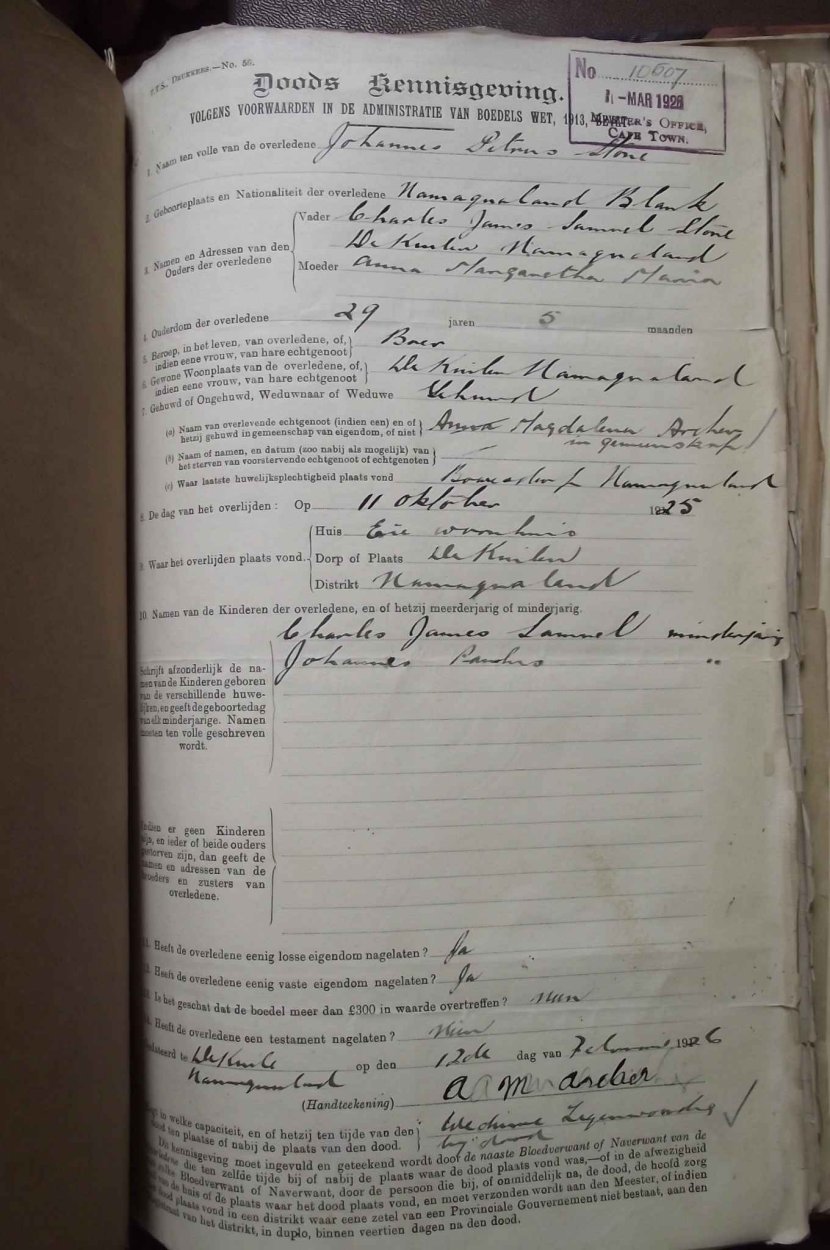 T.T.S. DRUKKERS.—No. 56.
Doods Kennisgeving.
VOLGENS VOORWAARDEN IN DE ADMINISTRATIE VAN BOEDELS WET, 1913,
No 10607
-MAR 1926
MASTER'S OFFICE,
CAPE TOWN.
1. Naam ten volle van de overledene Johannes Petrus Stone
2. Geboorteplaats en Nationaliteit der overledene Namaqualand Blank
3. Namen en Adressen van den Ouders der overledene
Vader Charles James Samuel Stone
De Kuilen Namaqualand
Moeder Anna Margaretha Maria
4. Ouderdom der overledene 29 jaren 5 maanden
5. Beroep, in het leven, van overledene, of,
indien eene vrouw, van hare echtgenoot Boer
6. Gewone Woonplaats van de overledene, of,
indien eene vrouw, van hare echtgenoot De Kuilen Namaqualand
7. Gehuwd of Ongehuwd, Weduwnaar of Weduwe Gehuwd
(a) Naam van overlevende echtgenoot (indien een) en of
hetzij gehuwd in gemeenschap van eigendom, of niet Anna Magdalena Archer
in gemeenskap
(b) Naam of namen, en datum (zoo nabij als mogelijk) van
het sterven van voorstervende echtgenoot of echtgenoten
(c) Waar laatste huwelijksplechtigheid plaats vond Namaqualand
8. De dag van het overlijden: Op 11 Oktober 1925
9. Waar het overlijden plaats vond.
Huis Eie woonhuis
Dorp of Plaats De Kuilen
Distrikt Namaqualand
10. Namen van de Kinderen der overledene, en of hetzij meerderjarig of minderjarig.
Charles James Samuel minderjarig
Johannes "
Schrijft afzonderlijk de na-
men van de Kinderen geboren
van de verschillende huwe-
lijken, en geeft de geboortedag
van elk minderjarige. Namen
moeten ten volle geschreven
wordt.
Indien er geen Kinderen
zijn, en ieder of beide ouders
gestorven zijn, dan geeft de
namen en adressen van de
broeders en zusters van
overledene.
11. Heeft de overledene eenig losse eigendom nagelaten? Ja
12. Heeft de overledene eenig vaste eigendom nagelaten? Ja
13. Is het geschat dat de boedel meer dan £300 in waarde overtreffen? Neen
14. Heeft de overledene een testament nagelaten? Neen
Gedateerd te De Kuile op den 12de dag van Februarie 1926
Namaqualand
(Handteekening) A M Archer
welke capaciteit, en of hetzij ten tijde van den
dood ten plaatse of nabij de plaats van den dood.
Weduwe Tegenwoordig
by dood
De kennisgeving moet ingevuld en geteekend wordt door de naaste Bloedverwant of Naverwant van de
overledene die ten zelfde tijde bij of nabij de plaats waar de dood plaats vond was,—of in de afwezigheid
Bloedverwant of Naverwant, door de persoon die bij, of onmiddelijk na, de dood, de hoofd zorg
van de huis of de plaats waar het dood plaats vond, en moet verzonden wordt aan den Meester, of indien
dood plaats vond in een distrikt waar eene zetel van een Provinciale Gouvernement niet bestaat, aan den
van het distrikt, in duplo, binnen veertien dagen na den dood.